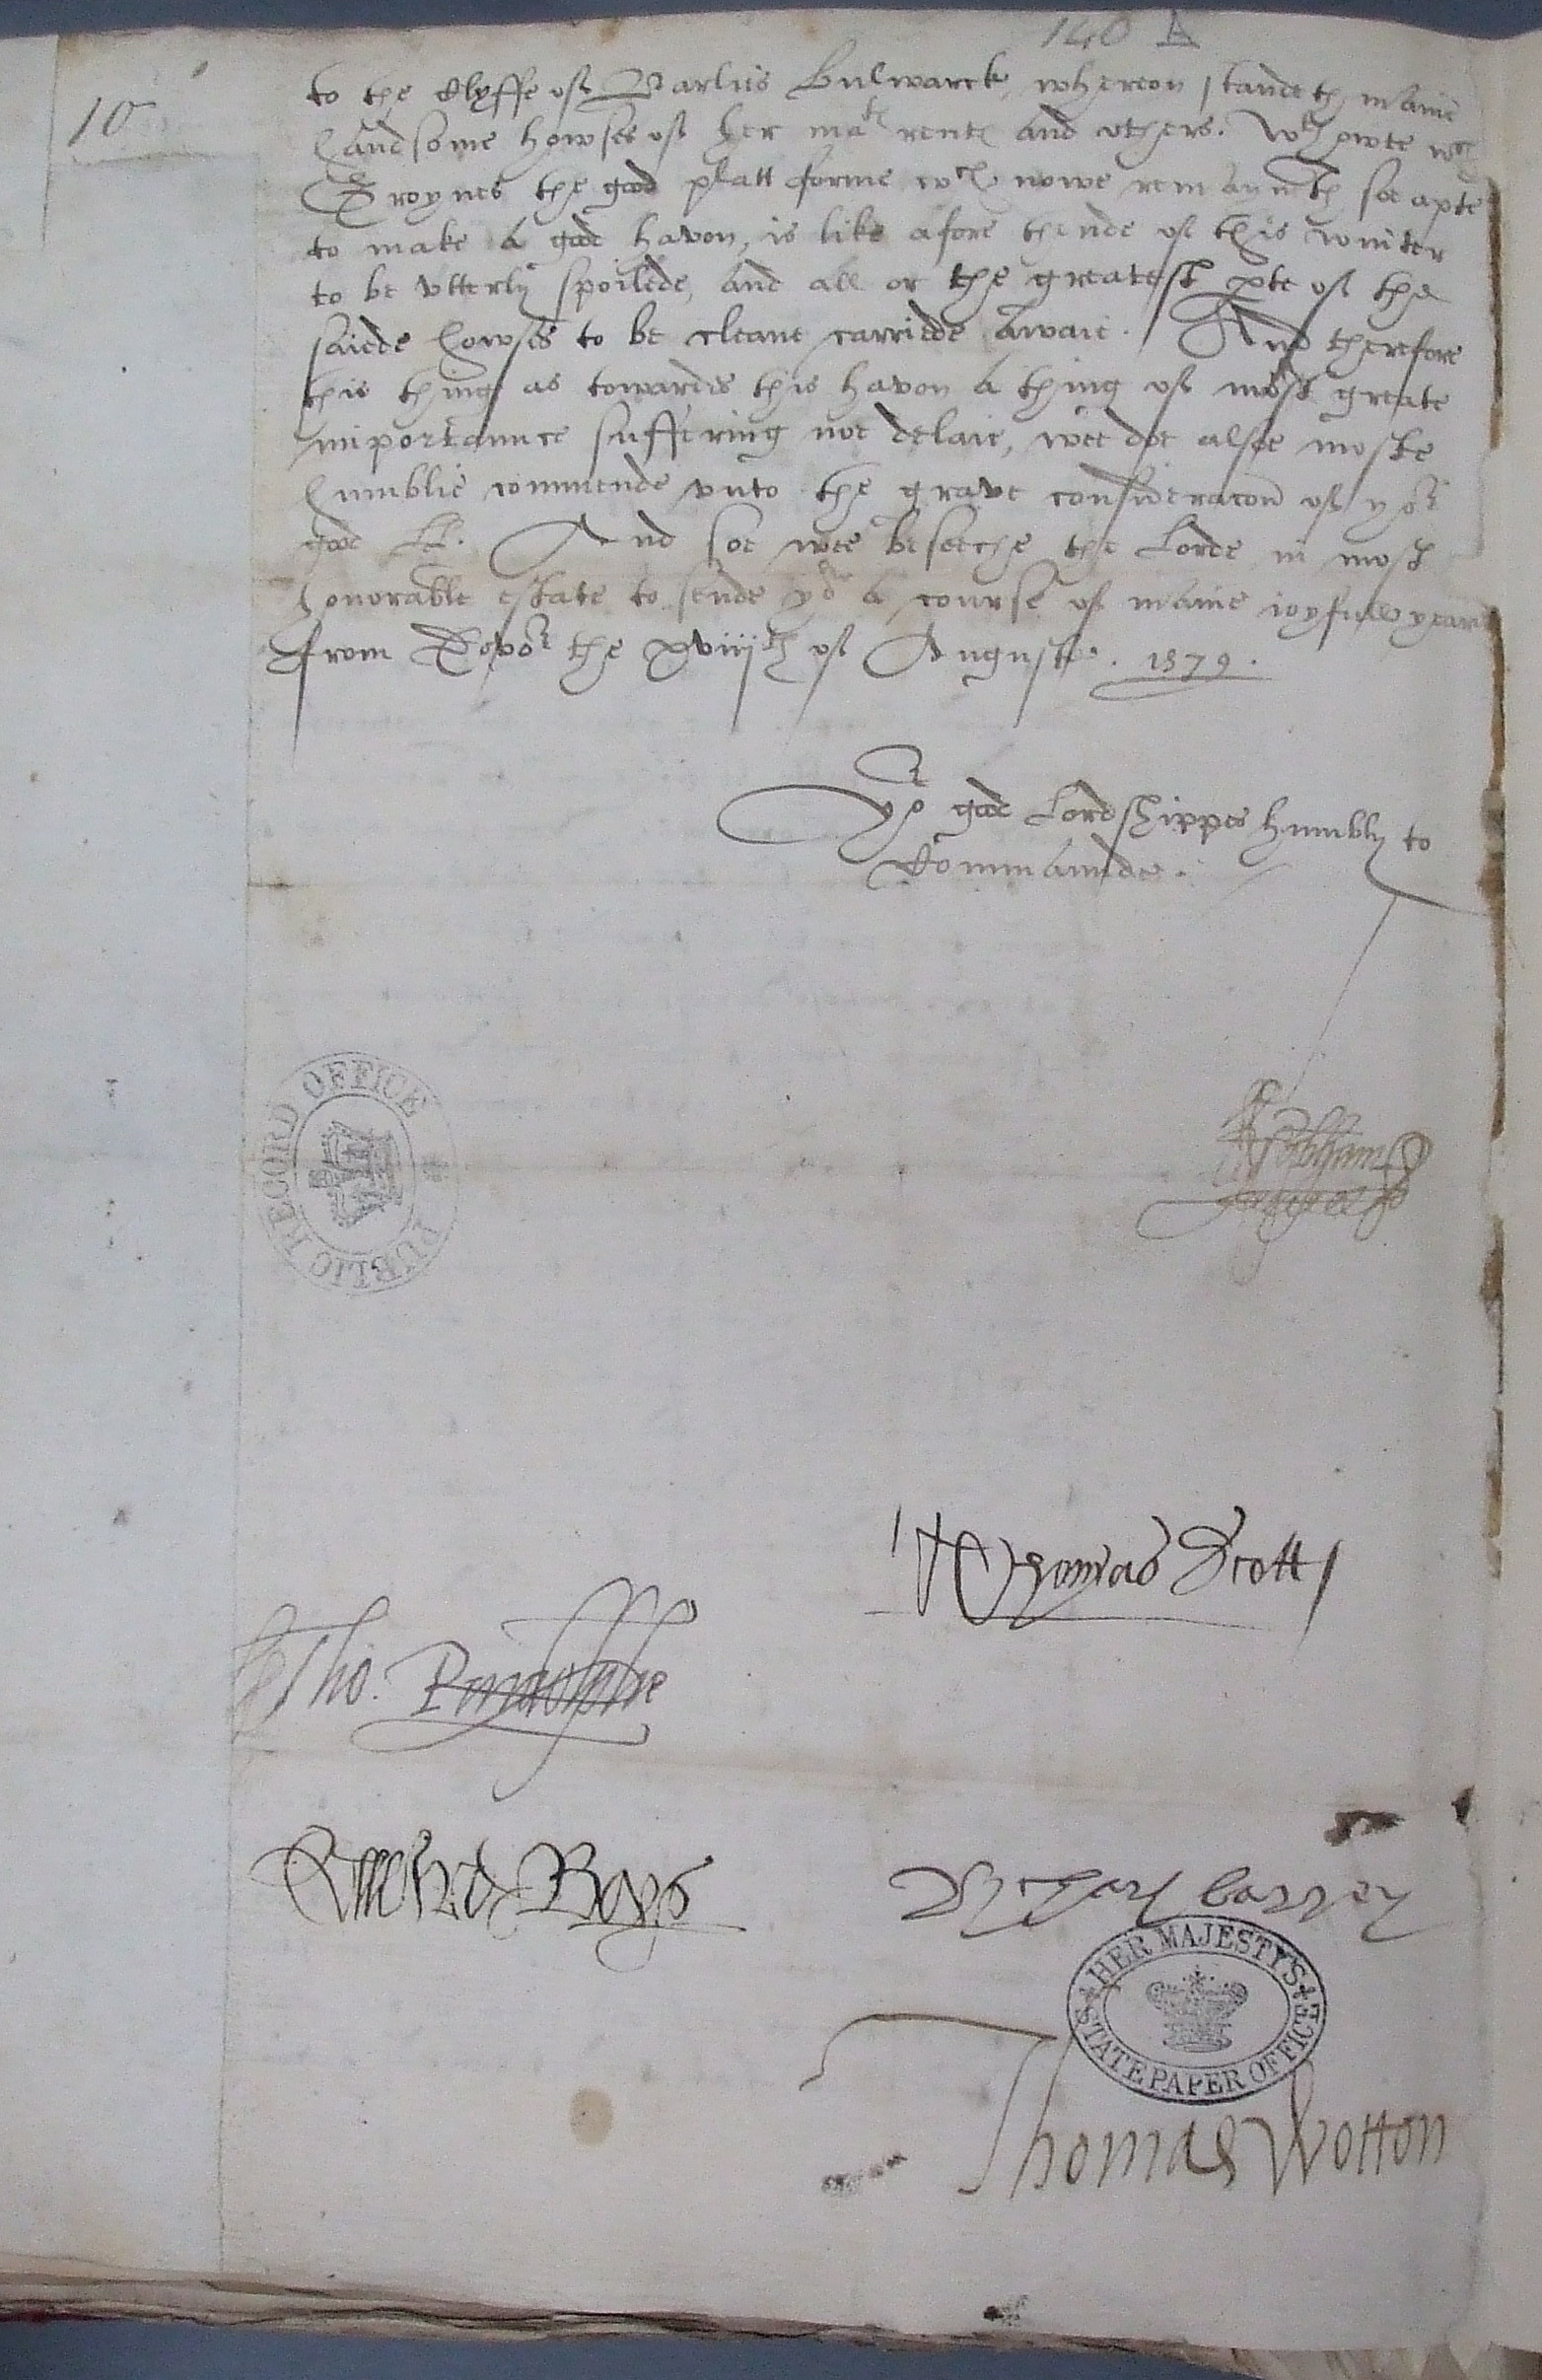 140 A
10
to the Clyffe of Barlies Bulwarck, whereon standeth manie
handsome howses of her matⁱᵉ rente and others. Wᵗʰowte wᶜʰ
Groynes the good platt forme wᶜʰ nowe remayneth soe apte
to make a good havon, is like afore thende of this winter
to be utterly spoilede, and all or the greatest pte of the
saiede howses to be cleane carriede awaie. And therefore
this thing as towardes this havon a thing of most greate
importaunce suffering noe delaie, wee doe alsoe moste
humblie commende vnto the grave consideracon of yoʳ
good LL. And soe wee beseeche the Lorde in most
honorable estate to sende yoᵘ a course of manie ioyfull yeares
from Dovoʳ the xviijᵗʰ of Auguste. 1579.
Yoʳ good Lordshippes humbly to
Commaunde.
Cobham
PUBLIC RECORD OFFICE
Thomas Scott
Tho. Randolphe
Edward Boys
Rychard barrey
HER MAJESTY'S STATE PAPER OFFICE
Thomas Wotton